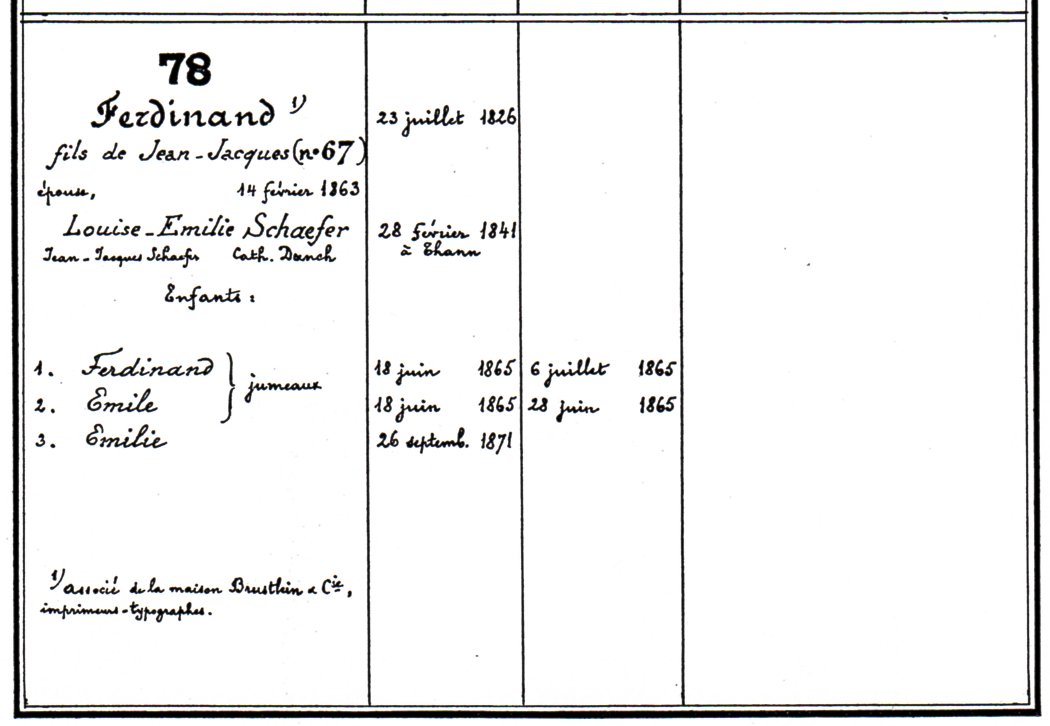 78
Ferdinand 1) 23 juillet 1826
fils de Jean-Jacques (nº 67)
épouse, 14 février 1863
Louise-Emilie Schaefer 28 février 1841
Jean-Jacques Schaefer Cath. Dench à Thann
Enfants :
1. Ferdinand } jumeaux 18 juin 1865 6 juillet 1865
2. Emile 18 juin 1865 28 juin 1865
3. Emilie 26 septemb. 1871
1) associé de la maison Brustlein & Cie,
imprimeurs-typographes.